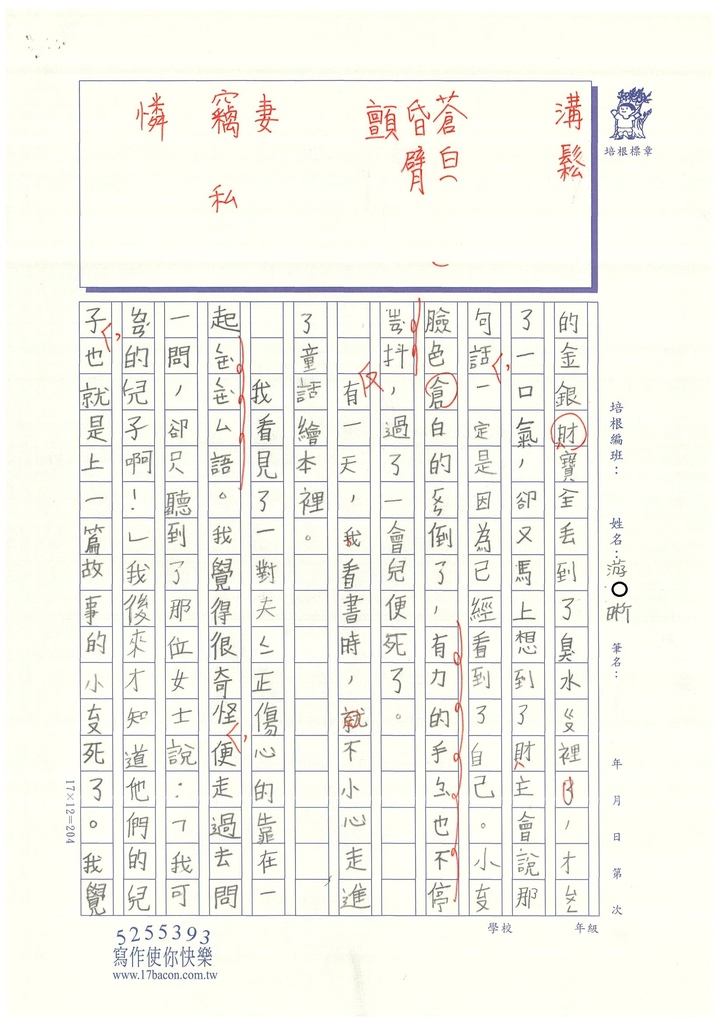 培根標章
溝
鬆
蒼白
昏
臂
顫
妻
竊
私
憐
培根編班：
姓名：
游〇晰
筆名：
年 月 日 第 次
的金銀財寶全丟到了臭水ㄍㄡ裡了，才ㄙㄨㄥ
了一口氣，卻又馬上想到了財主會說那
句話一定是因為已經看到了自己。小友
臉色倉白的ㄏㄨㄣ倒了，有力的手ㄅㄧˋ也不停
ㄓㄢˋ抖，過了一會兒便死了。
有一天，我看書時，就不小心走進
了童話繪本裡。
我看見了一對夫ㄑㄧ正傷心的靠在一
起ㄑㄧㄝˋㄑㄧㄝˋㄙ語。我覺得很奇怪便走過去問
一問，卻只聽到了那位女士說：「我可
ㄌㄧㄢˊ的兒子啊！」我後來才知道他們的兒
子也就是上一篇故事的小友死了。我覺
反
17×12=204
學校 年級
5255393
寫作使你快樂
www.17bacon.com.tw